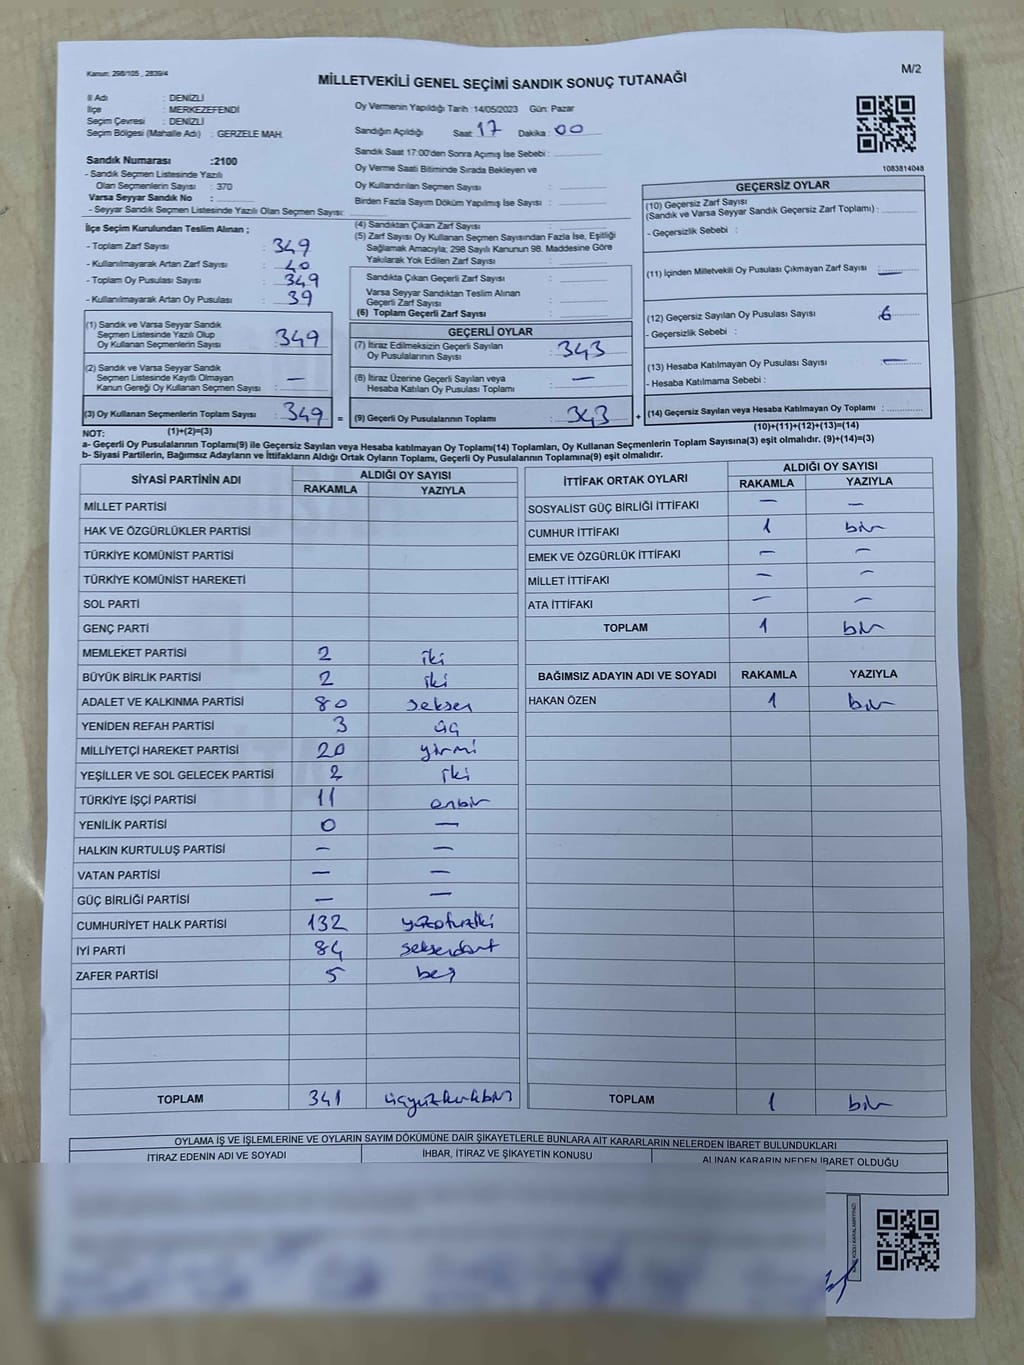 Kanun: 298/105 , 2839/4
MİLLETVEKİLİ GENEL SEÇİMİ SANDIK SONUÇ TUTANAĞI
M/2
İl Adı : DENİZLİ
İlçe : MERKEZEFENDİ
Seçim Çevresi : DENİZLİ
Seçim Bölgesi (Mahalle Adı) : GERZELE MAH.
Sandık Numarası :2100
- Sandık Seçmen Listesinde Yazılı
Olan Seçmenlerin Sayısı : 370
Varsa Seyyar Sandık No :
- Seyyar Sandık Seçmen Listesinde Yazılı Olan Seçmen Sayısı:
Oy Vermenin Yapıldığı Tarih :14/05/2023 Gün: Pazar
Sandığın Açıldığı Saat: 17 Dakika : 00
Sandık Saat 17:00'den Sonra Açımış İse Sebebi :
Oy Verme Saati Bitiminde Sırada Bekleyen ve
Oy Kullandırılan Seçmen Sayısı :
Birden Fazla Sayım Döküm Yapılmış İse Sayısı :
1083814048
İlçe Seçim Kurulundan Teslim Alınan ;
- Toplam Zarf Sayısı : 349
- Kullanılmayarak Artan Zarf Sayısı : 40
- Toplam Oy Pusulası Sayısı : 349
- Kullanılmayarak Artan Oy Pusulası : 39
(1) Sandık ve Varsa Seyyar Sandık
Seçmen Listesinde Yazılı Olup
Oy Kullanan Seçmenlerin Sayısı : 349
(2) Sandık ve Varsa Seyyar Sandık
Seçmen Listesinde Kayıtlı Olmayan
Kanun Gereği Oy Kullanan Seçmen Sayısı : —
(3) Oy Kullanan Seçmenlerin Toplam Sayısı : 349 =
(1)+(2)=(3)
(4) Sandıktan Çıkan Zarf Sayısı :
(5) Zarf Sayısı Oy Kullanan Seçmen Sayısından Fazla İse, Eşitliği
Sağlamak Amacıyla; 298 Sayılı Kanunun 98. Maddesine Göre
Yakılarak Yok Edilen Zarf Sayısı :
Sandıkta Çıkan Geçerli Zarf Sayısı :
Varsa Seyyar Sandıktan Teslim Alınan
Geçerli Zarf Sayısı :
(6) Toplam Geçerli Zarf Sayısı :
GEÇERLİ OYLAR
(7) İtiraz Edilmeksizin Geçerli Sayılan
Oy Pusulalarının Sayısı : 343
(8) İtiraz Üzerine Geçerli Sayılan veya
Hesaba Katılan Oy Pusulası Toplamı : —
(9) Geçerli Oy Pusulalarının Toplamı : 343 +
GEÇERSİZ OYLAR
(10) Geçersiz Zarf Sayısı
(Sandık ve Varsa Seyyar Sandık Geçersiz Zarf Toplamı) :
- Geçersizlik Sebebi :
(11) İçinden Milletvekili Oy Pusulası Çıkmayan Zarf Sayısı : —
(12) Geçersiz Sayılan Oy Pusulası Sayısı : 6
- Geçersizlik Sebebi :
(13) Hesaba Katılmayan Oy Pusulası Sayısı : —
- Hesaba Katılmama Sebebi :
(14) Geçersiz Sayılan veya Hesaba Katılmayan Oy Toplamı :
(10)+(11)+(12)+(13)=(14)
NOT:
a- Geçerli Oy Pusulalarının Toplamı(9) ile Geçersiz Sayılan veya Hesaba katılmayan Oy Toplamı(14) Toplamları, Oy Kullanan Seçmenlerin Toplam Sayısına(3) eşit olmalıdır. (9)+(14)=(3)
b- Siyasi Partilerin, Bağımsız Adayların ve İttifakların Aldığı Ortak Oyların Toplamı, Geçerli Oy Pusulalarının Toplamına(9) eşit olmalıdır.
SİYASİ PARTİNİN ADI ALDIĞI OY SAYISI
RAKAMLA YAZIYLA
MİLLET PARTİSİ
HAK VE ÖZGÜRLÜKLER PARTİSİ
TÜRKİYE KOMÜNİST PARTİSİ
TÜRKİYE KOMÜNİST HAREKETİ
SOL PARTİ
GENÇ PARTİ
MEMLEKET PARTİSİ 2 iki
BÜYÜK BİRLİK PARTİSİ 2 iki
ADALET VE KALKINMA PARTİSİ 80 seksen
YENİDEN REFAH PARTİSİ 3 üç
MİLLİYETÇİ HAREKET PARTİSİ 20 yirmi
YEŞİLLER VE SOL GELECEK PARTİSİ 2 iki
TÜRKİYE İŞÇİ PARTİSİ 11 onbir
YENİLİK PARTİSİ 0 —
HALKIN KURTULUŞ PARTİSİ — —
VATAN PARTİSİ — —
GÜÇ BİRLİĞİ PARTİSİ — —
CUMHURİYET HALK PARTİSİ 132 yüzotuziki
İYİ PARTİ 84 seksendört
ZAFER PARTİSİ 5 beş
TOPLAM 341 üçyüzkırkbir
İTTİFAK ORTAK OYLARI ALDIĞI OY SAYISI
RAKAMLA YAZIYLA
SOSYALİST GÜÇ BİRLİĞİ İTTİFAKI — —
CUMHUR İTTİFAKI 1 bir
EMEK VE ÖZGÜRLÜK İTTİFAKI — —
MİLLET İTTİFAKI — —
ATA İTTİFAKI — —
TOPLAM 1 bir
BAĞIMSIZ ADAYIN ADI VE SOYADI RAKAMLA YAZIYLA
HAKAN ÖZEN 1 bir
TOPLAM 1 bir
OYLAMA İŞ VE İŞLEMLERİNE VE OYLARIN SAYIM DÖKÜMÜNE DAİR ŞİKAYETLERLE BUNLARA AİT KARARLARIN NELERDEN İBARET BULUNDUKLARI
İTİRAZ EDENİN ADI VE SOYADI İHBAR, İTİRAZ VE ŞİKAYETİN KONUSU ALINAN KARARIN NEDEN İBARET OLDUĞU